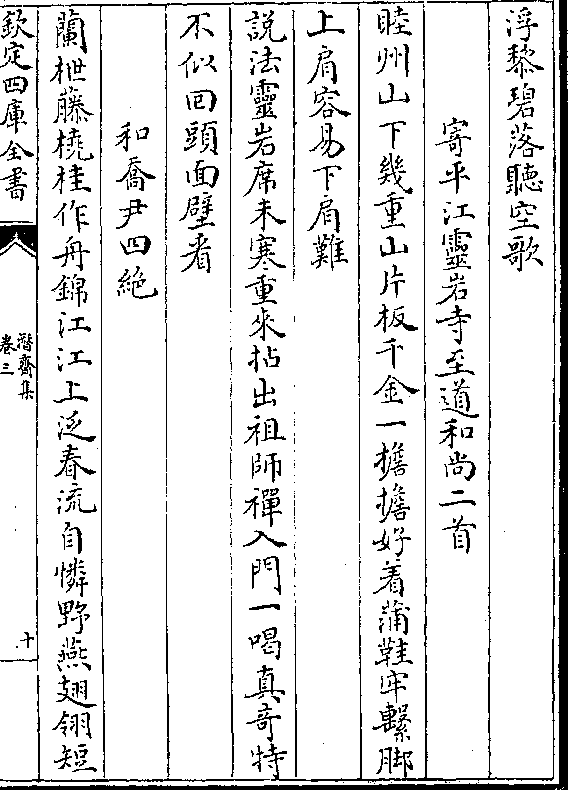 浮黎碧落聽空歌
寄平江靈岩寺至道和尚二首
睦州山下幾重山片板千金一擔擔好着蒲鞋牢繫脚
上肩容易下肩難
說法靈岩席未寒重來拈出祖師禪入門一喝真奇特
不似回頭面壁看
和喬尹四絶
蘭枻藤橈桂作舟錦江江上泛春流自憐野燕翅翎短
欽定四庫全書
潛齋集
卷三
十